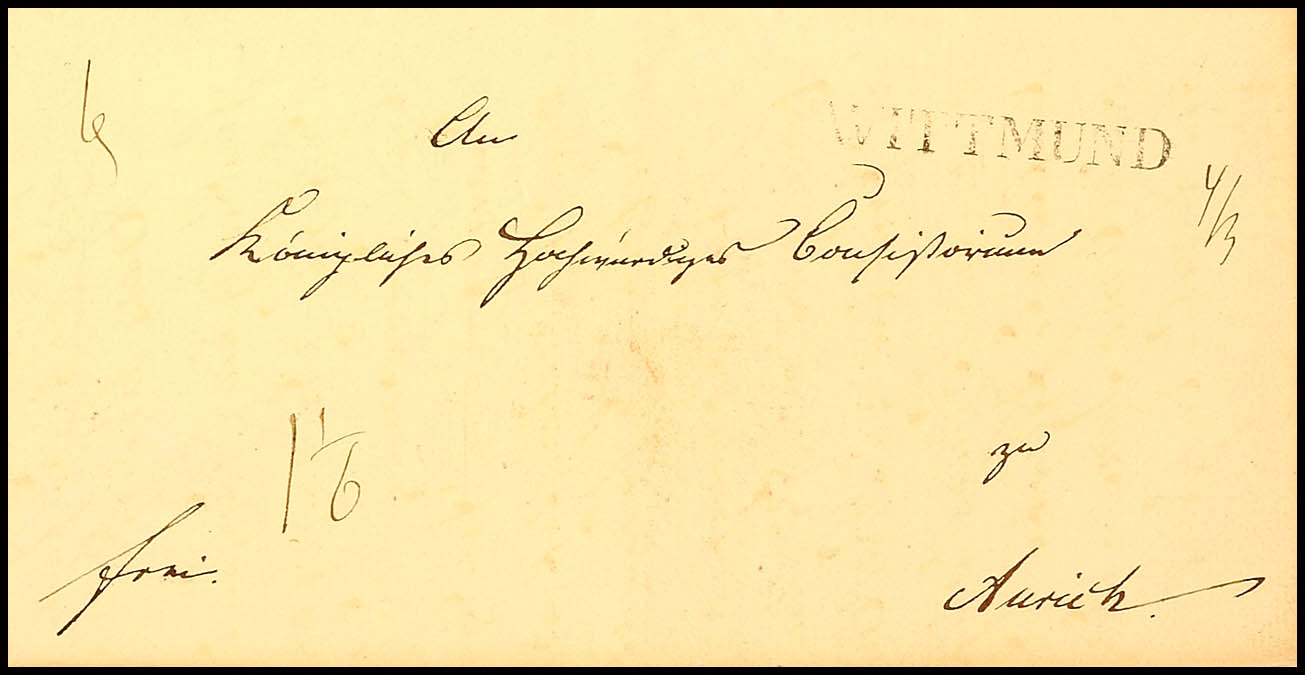 An
WITTMUND
4/3
Königliches Hochwürdiges Consistorium
zu
frei.
Aurich.